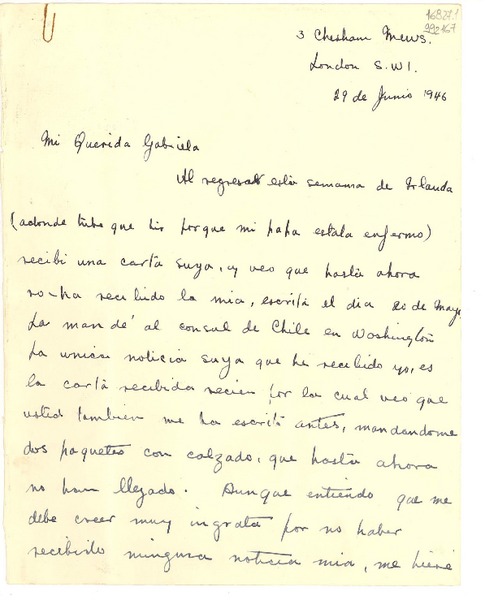 3 Chesham Mews.
London S.W1.
29 de Junio 1946
Mi Querida Gabriela
Al regresar esta semana de Irlanda
(adonde tube que hir porque mi papa estala enfermo)
recibi una carta suya, y veo que hasta ahora
no-ha recibido la mia, escrita el dia 20 de Mayo
La mandé al consul de Chile en Washington
La unica noticia suya que he recibido yo, es
la carta recibida recien por la cual veo que
usted tambien me ha escrito antes, mandandome
dos paquetes con calzado, que hasta ahora
no han llegado. Aunque entiendo que me
debe creer muy ingrata por no haber
recibido ninguna noticia mia, me hiere